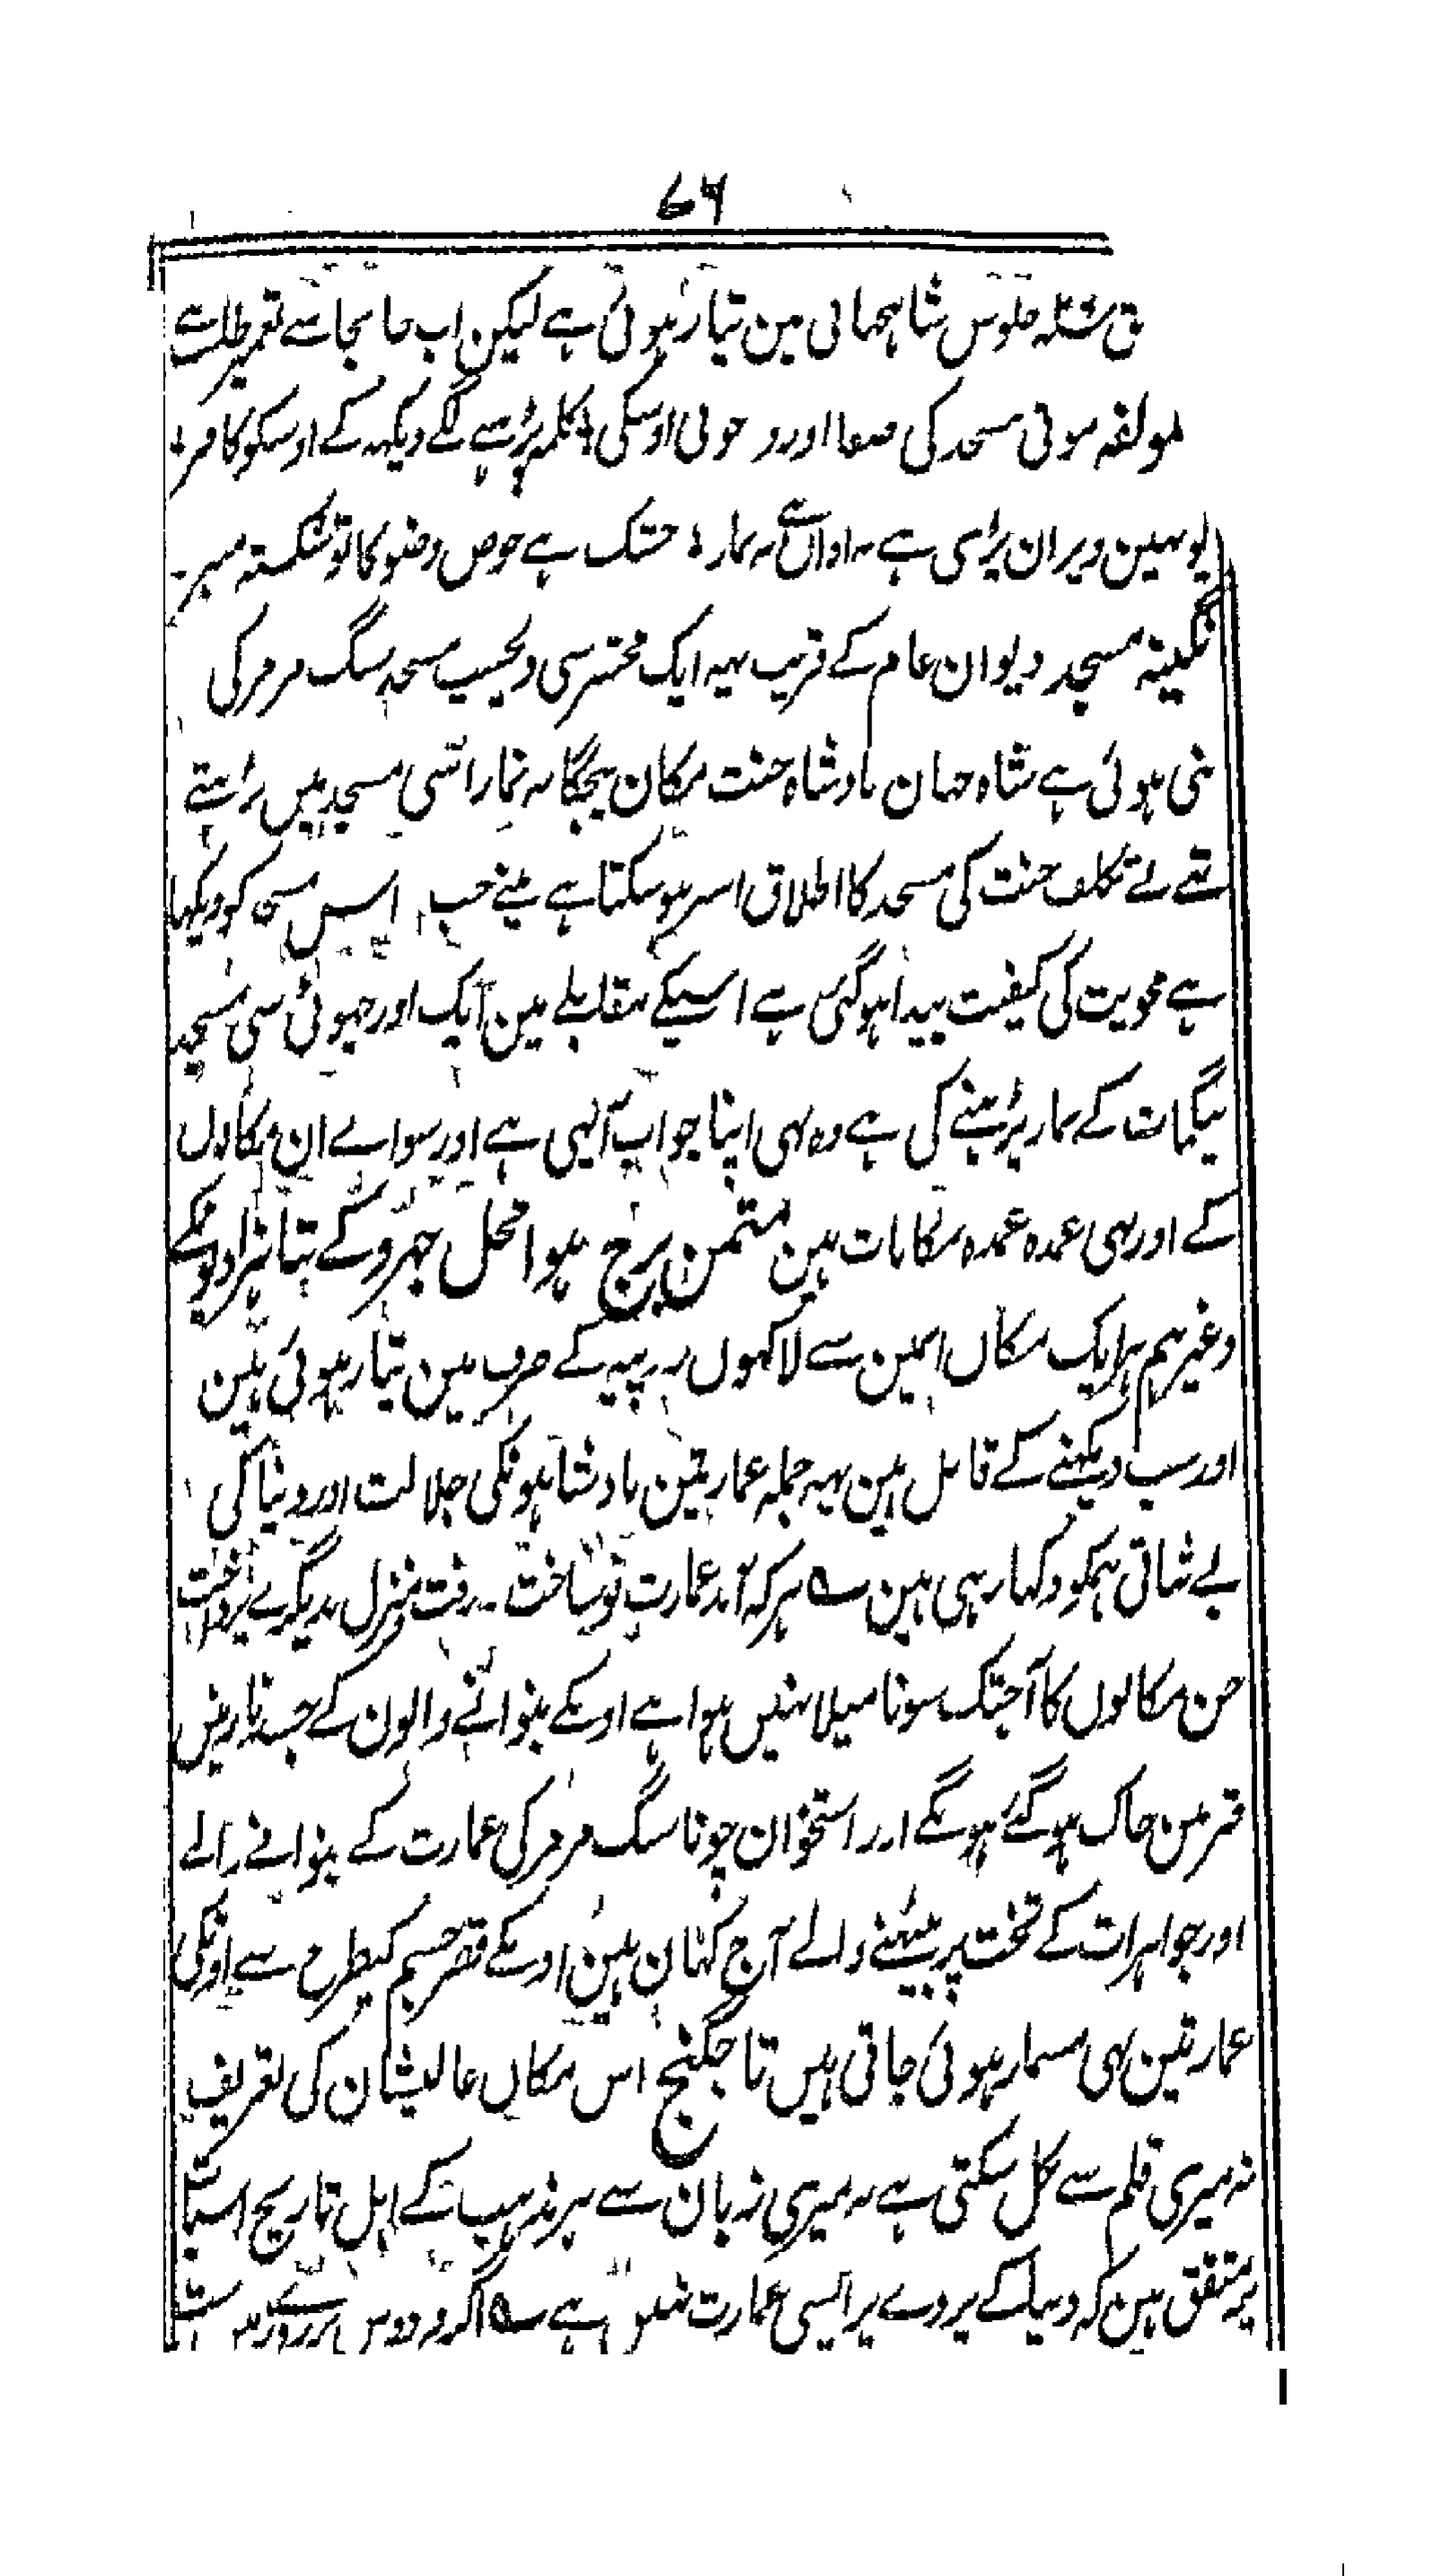 ۶۷
جلوس شاہجہانی مین تیار ہوئی ہے لیکن اب جا بجا سے تعمیر طلب ہے
مولفہ موتی مسجد کی صفا اور خوبی اوسکی ؛ کلمہ پڑہے لگے دیکہہ کے اوسکو کافر ؛
یوہین ویران پڑی ہے نہ اذان ہے نہ نماز ؛ خشک ہے حوض وضو کا تو شکستہ ممبر ۔
نگینہ مسجد دیوان عام کے قریب یہہ ایک مختصر سی دلچسپ مسجد سنگ مرمر کی
بنی ہوئی ہے شاہ جہان بادشاہ جنت مکان پنجگانہ نماز اسی مسجد میں پڑہتے
تھے بے تکلف جنت کی مسجد کا اطلاق اسپر ہو سکتا ہے مینے جب اس مسجد کو دیکہا
ہے محویت کی کیفیت پیدا ہوگئی ہے اسیکے مقابلے مین ایک اور چہوٹی سی مسجد
بیگمات کے نماز پڑہنے کی ہے وہ بہی اپنا جواب آپہی ہے اور سواے ان مکانوں
کے اور بہی عمدہ عمدہ مکانات ہین مثمن برج ہوا محل جہروکے
وغیرہم ہر ایک مکاں اسمین سے لاکہوں روپیہ کے صرف مین تیار ہوئی ہین
اور سب دیکہنے کے قابل ہین یہہ جملہ عمارتین بادشاہونکی جلالت اور دنیا کی
بے ثباتی ہمکو دکہا رہی ہین ؎ ہر کہ آمد عمارت نو ساخت ۔ رفت و منزل بدیگرے پرداخت
جن مکانوں کا آجتک سونا میلا نہیں ہوا ہے اونکے بنوانے والون کے جسد نازنین
قبر مین خاک ہوگئے ہونگے اور استخوان چونا سنگ مرمر کی عمارت کے بنوانے والے
اور جواہرات کے تخت پر بیٹہنے والے آج کہان ہین اونکے قصر جسم کیطرح سے اونکی
عمارتین بہی مسمار ہوئی جاتی ہیں تاجگنج اس مکاں عالیشان کی تعریف
نہ میری قلم سے نکل سکتی ہے نہ میری زبان سے ہر مذہب کے اہل تاریخ اسبات
پر متفق ہین کہ دنیا کے پردے پر ایسی عمارت نہین ہے ؎ اگر فردوس